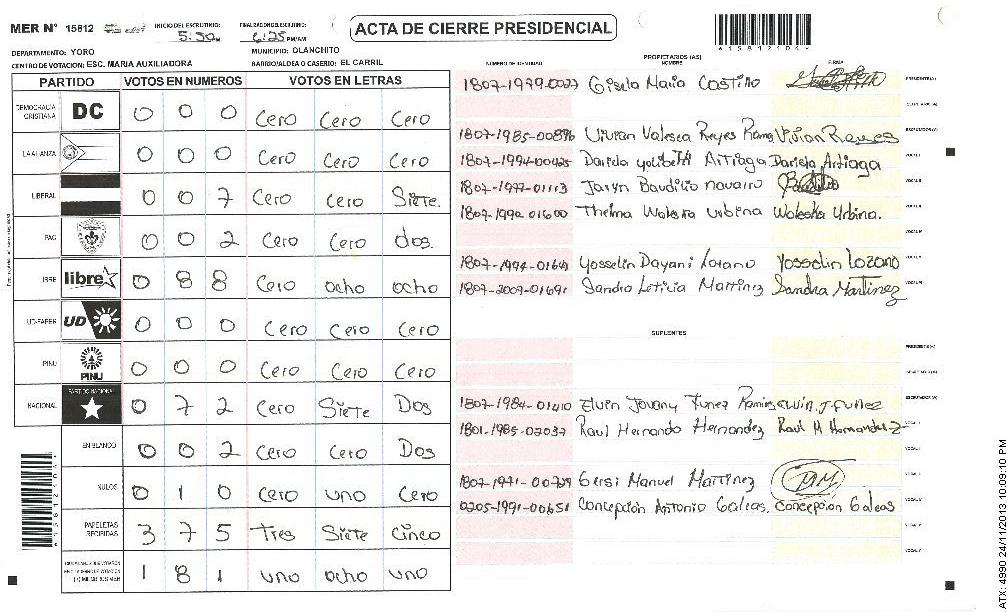 MER N° 15812
INICIO DEL ESCRUTINIO: 5:30 PM
FINALIZACION ESCRUTINIO: 6:25 PM/AM
ACTA DE CIERRE PRESIDENCIAL
DEPARTAMENTO: YORO
MUNICIPIO: OLANCHITO
CENTRO DE VOTACION: ESC. MARIA AUXILIADORA
BARRIO/ALDEA O CASERIO: EL CARRIL
PARTIDO VOTOS EN NUMEROS VOTOS EN LETRAS
DEMOCRACIA CRISTIANA DC 0 0 0 Cero Cero Cero
LA ALIANZA 0 0 0 Cero Cero Cero
LIBERAL 0 0 7 Cero Cero Siete.
PAC 0 0 2 Cero Cero dos.
LIBRE libre 0 8 8 Cero ocho ocho
UD-FAPER UD 0 0 0 Cero Cero Cero
PINU PINU 0 0 0 Cero Cero Cero
NACIONAL PARTIDO NACIONAL 0 7 2 Cero Siete Dos
EN BLANCO 0 0 2 Cero Cero Dos
NULOS 0 1 0 Cero uno Cero
PAPELETAS RECIBIDAS 3 7 5 Tres Siete Cinco
1 8 1 uno ocho uno
PROPIETARIOS (AS)
NUMERO DE IDENTIDAD NOMBRE FIRMA
Gisela Maria Castillo PRESIDENTE(A)
1807-1985-00896 Vivian Valesca Reyes Ramos Vivian Reyes ESCRUTADOR(A)
1807-1994-00425 Artiaga Dariela Artiaga VOCAL I
1807-1977-01113 Jaryn Baudilio navarro VOCAL II
1807-1992-01600 Thelma Waleska urbina Waleska Urbina.
1807-1994-01641 Yosselin Dayani Lozano Yosselin Lozano
1807-2009-01691 Sandra Leticia Martinez Sandra Martinez
SUPLENTES
PRESIDENTE(A)
1807-1984-01410 Elvin Jovany Funez Ramirez elvin. J. Funez ESCRUTADOR(A)
1801-1985-02037 Raul Hernando Hernandez Raul H Hernandez VOCAL I
1807-1971-00729 Gersi Manuel Martinez
0205-1991-00651 Concepcion Antonio Galeas. Concepcion Galeas
A15812104
ATX: 4990 24/11/2013 10:09:10 PM